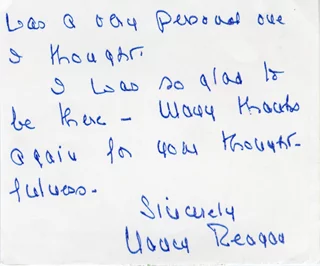 was a very personal one
I thought.
I was so glad to
be there - Many thanks
again for your thought-
fulness.
Sincerely
Nancy Reagan